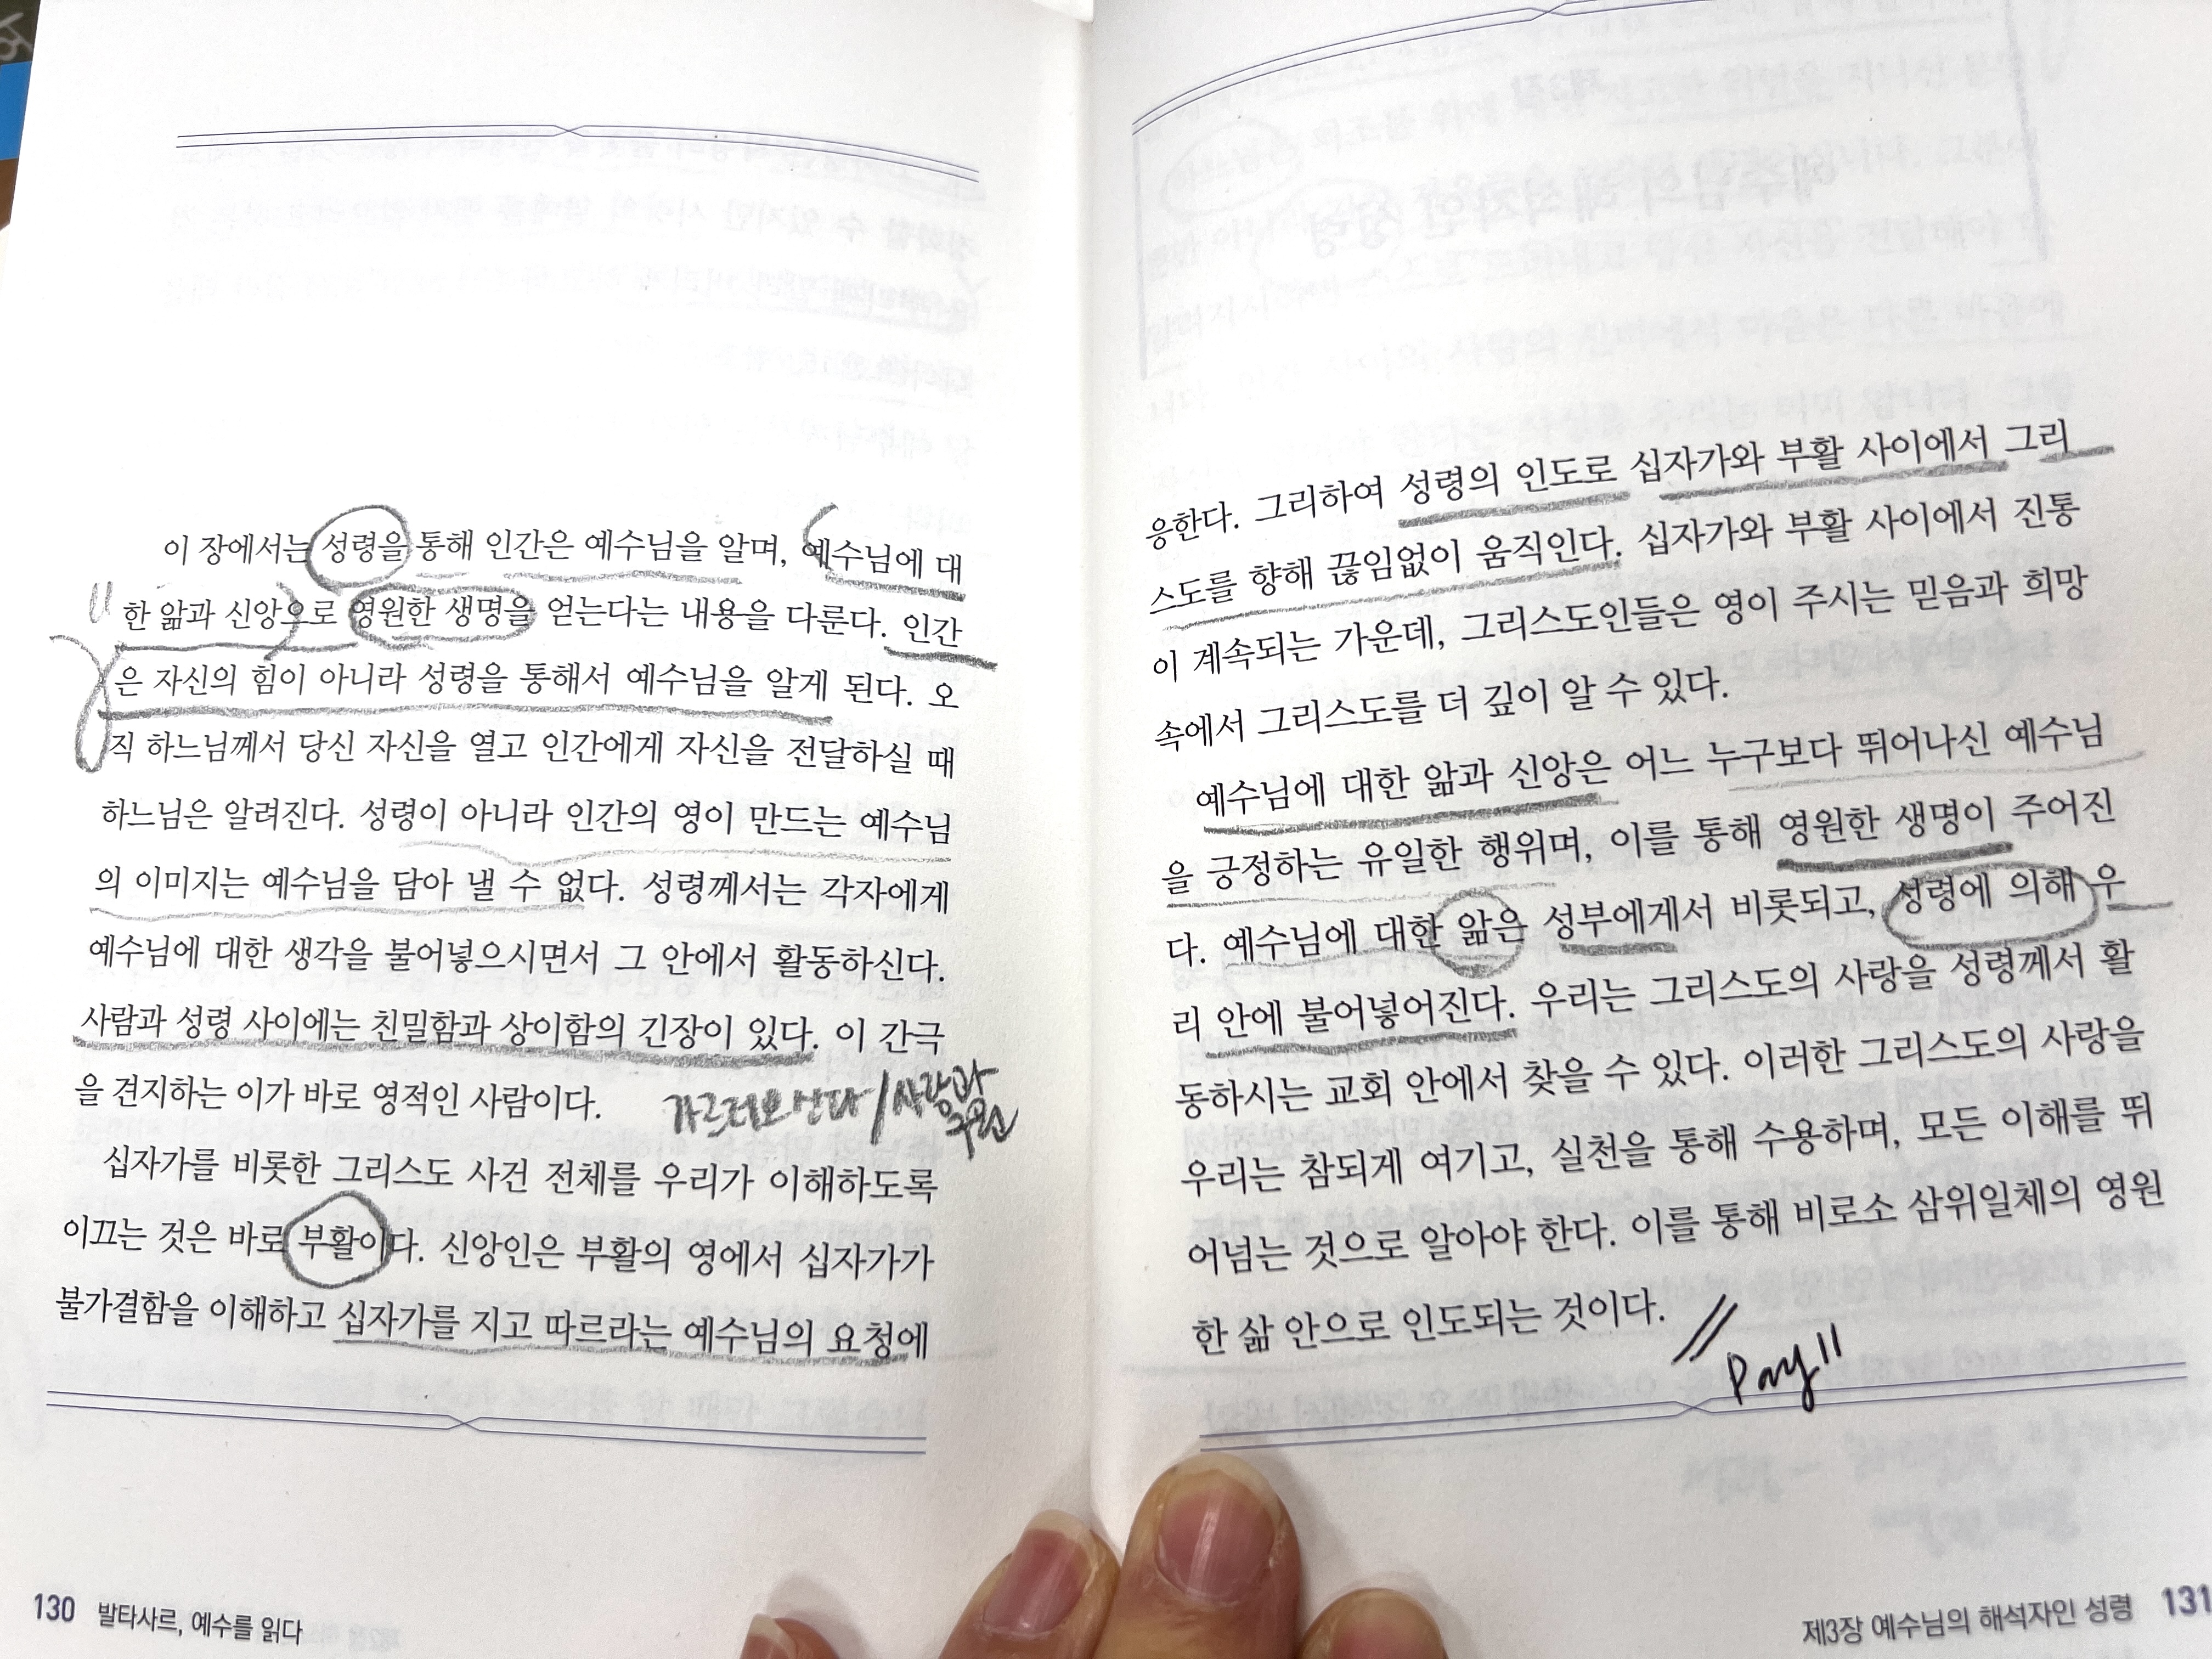 이 장에서는 성령을 통해 인간은 예수님을 알며, 예수님에 대
한 앎과 신앙으로 영원한 생명을 얻는다는 내용을 다룬다. 인간
은 자신의 힘이 아니라 성령을 통해서 예수님을 알게 된다. 오
직 하느님께서 당신 자신을 열고 인간에게 자신을 전달하실 때
하느님은 알려진다. 성령이 아니라 인간의 영이 만드는 예수님
의 이미지는 예수님을 담아 낼 수 없다. 성령께서는 각자에게
예수님에 대한 생각을 불어넣으시면서 그 안에서 활동하신다.
사람과 성령 사이에는 친밀함과 상이함의 긴장이 있다. 이 간극
을 견지하는 이가 바로 영적인 사람이다.
십자가를 비롯한 그리스도 사건 전체를 우리가 이해하도록
이끄는 것은 바로 부활이다. 신앙인은 부활의 영에서 십자가가
불가결함을 이해하고 십자가를 지고 따르라는 예수님의 요청에
130 발타사르, 예수를 읽다
응한다. 그리하여 성령의 인도로 십자가와 부활 사이에서 그리
스도를 향해 끊임없이 움직인다. 십자가와 부활 사이에서 진통
이 계속되는 가운데, 그리스도인들은 영이 주시는 믿음과 희망
속에서 그리스도를 더 깊이 알 수 있다.
예수님에 대한 앎과 신앙은 어느 누구보다 뛰어나신 예수님
을 긍정하는 유일한 행위며, 이를 통해 영원한 생명이 주어진
다. 예수님에 대한 앎은 성부에게서 비롯되고, 성령에 의해 우
리 안에 불어넣어진다. 우리는 그리스도의 사랑을 성령께서 활
동하시는 교회 안에서 찾을 수 있다. 이러한 그리스도의 사랑을
우리는 참되게 여기고, 실천을 통해 수용하며, 모든 이해를 뛰
어넘는 것으로 알아야 한다. 이를 통해 비로소 삼위일체의 영원
한 삶 안으로 인도되는 것이다.
제3장 예수님의 해석자인 성령 131